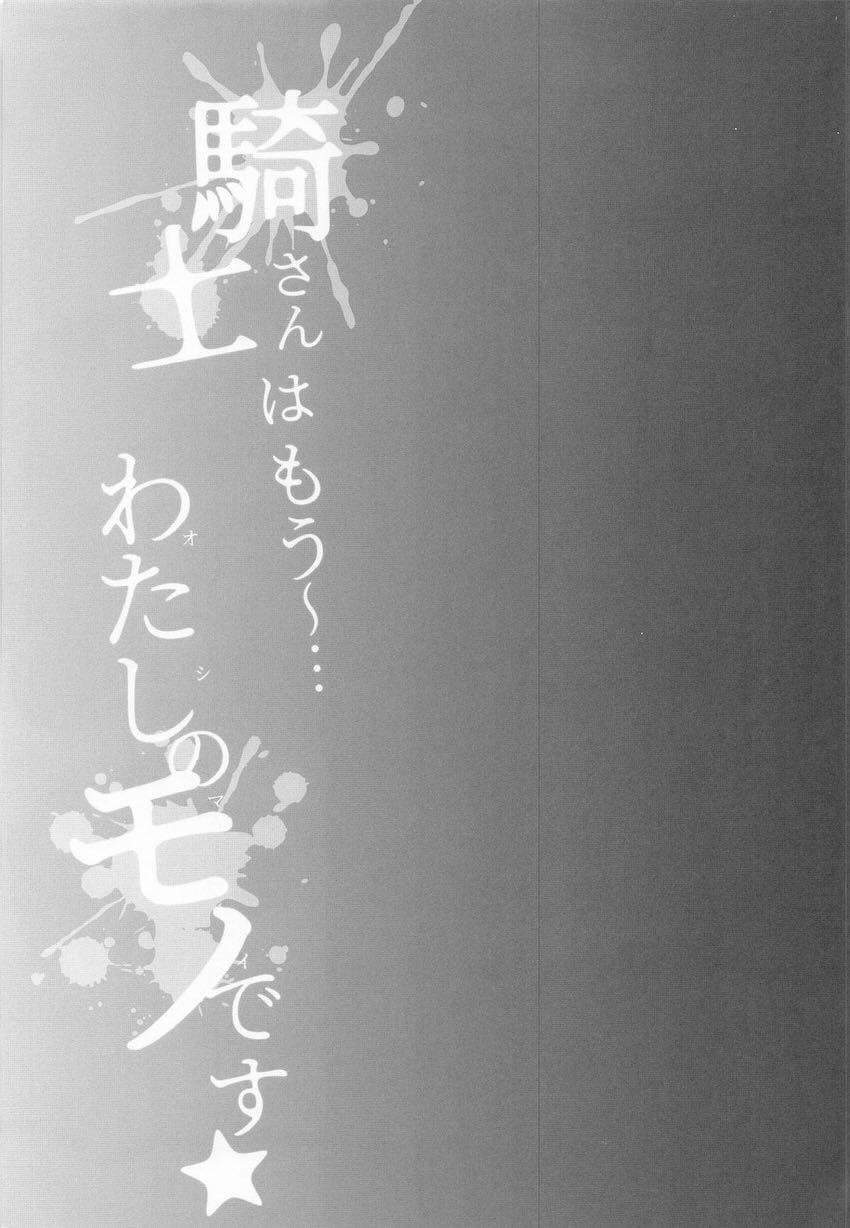 騎士さんはもう～…
わたしのモノです★
オシマイ